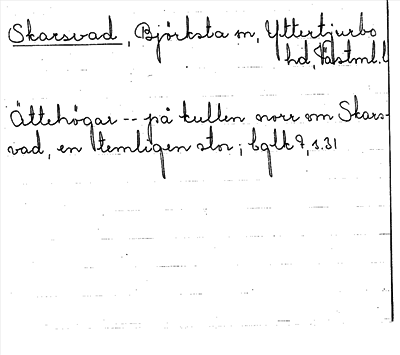 Skarsvad, Björksta sn, Yttertjurbo
hd, Västml. l
Ättehögar -- på kullen norr om Skars-
vad, en temligen stor; bglk 9, s. 31